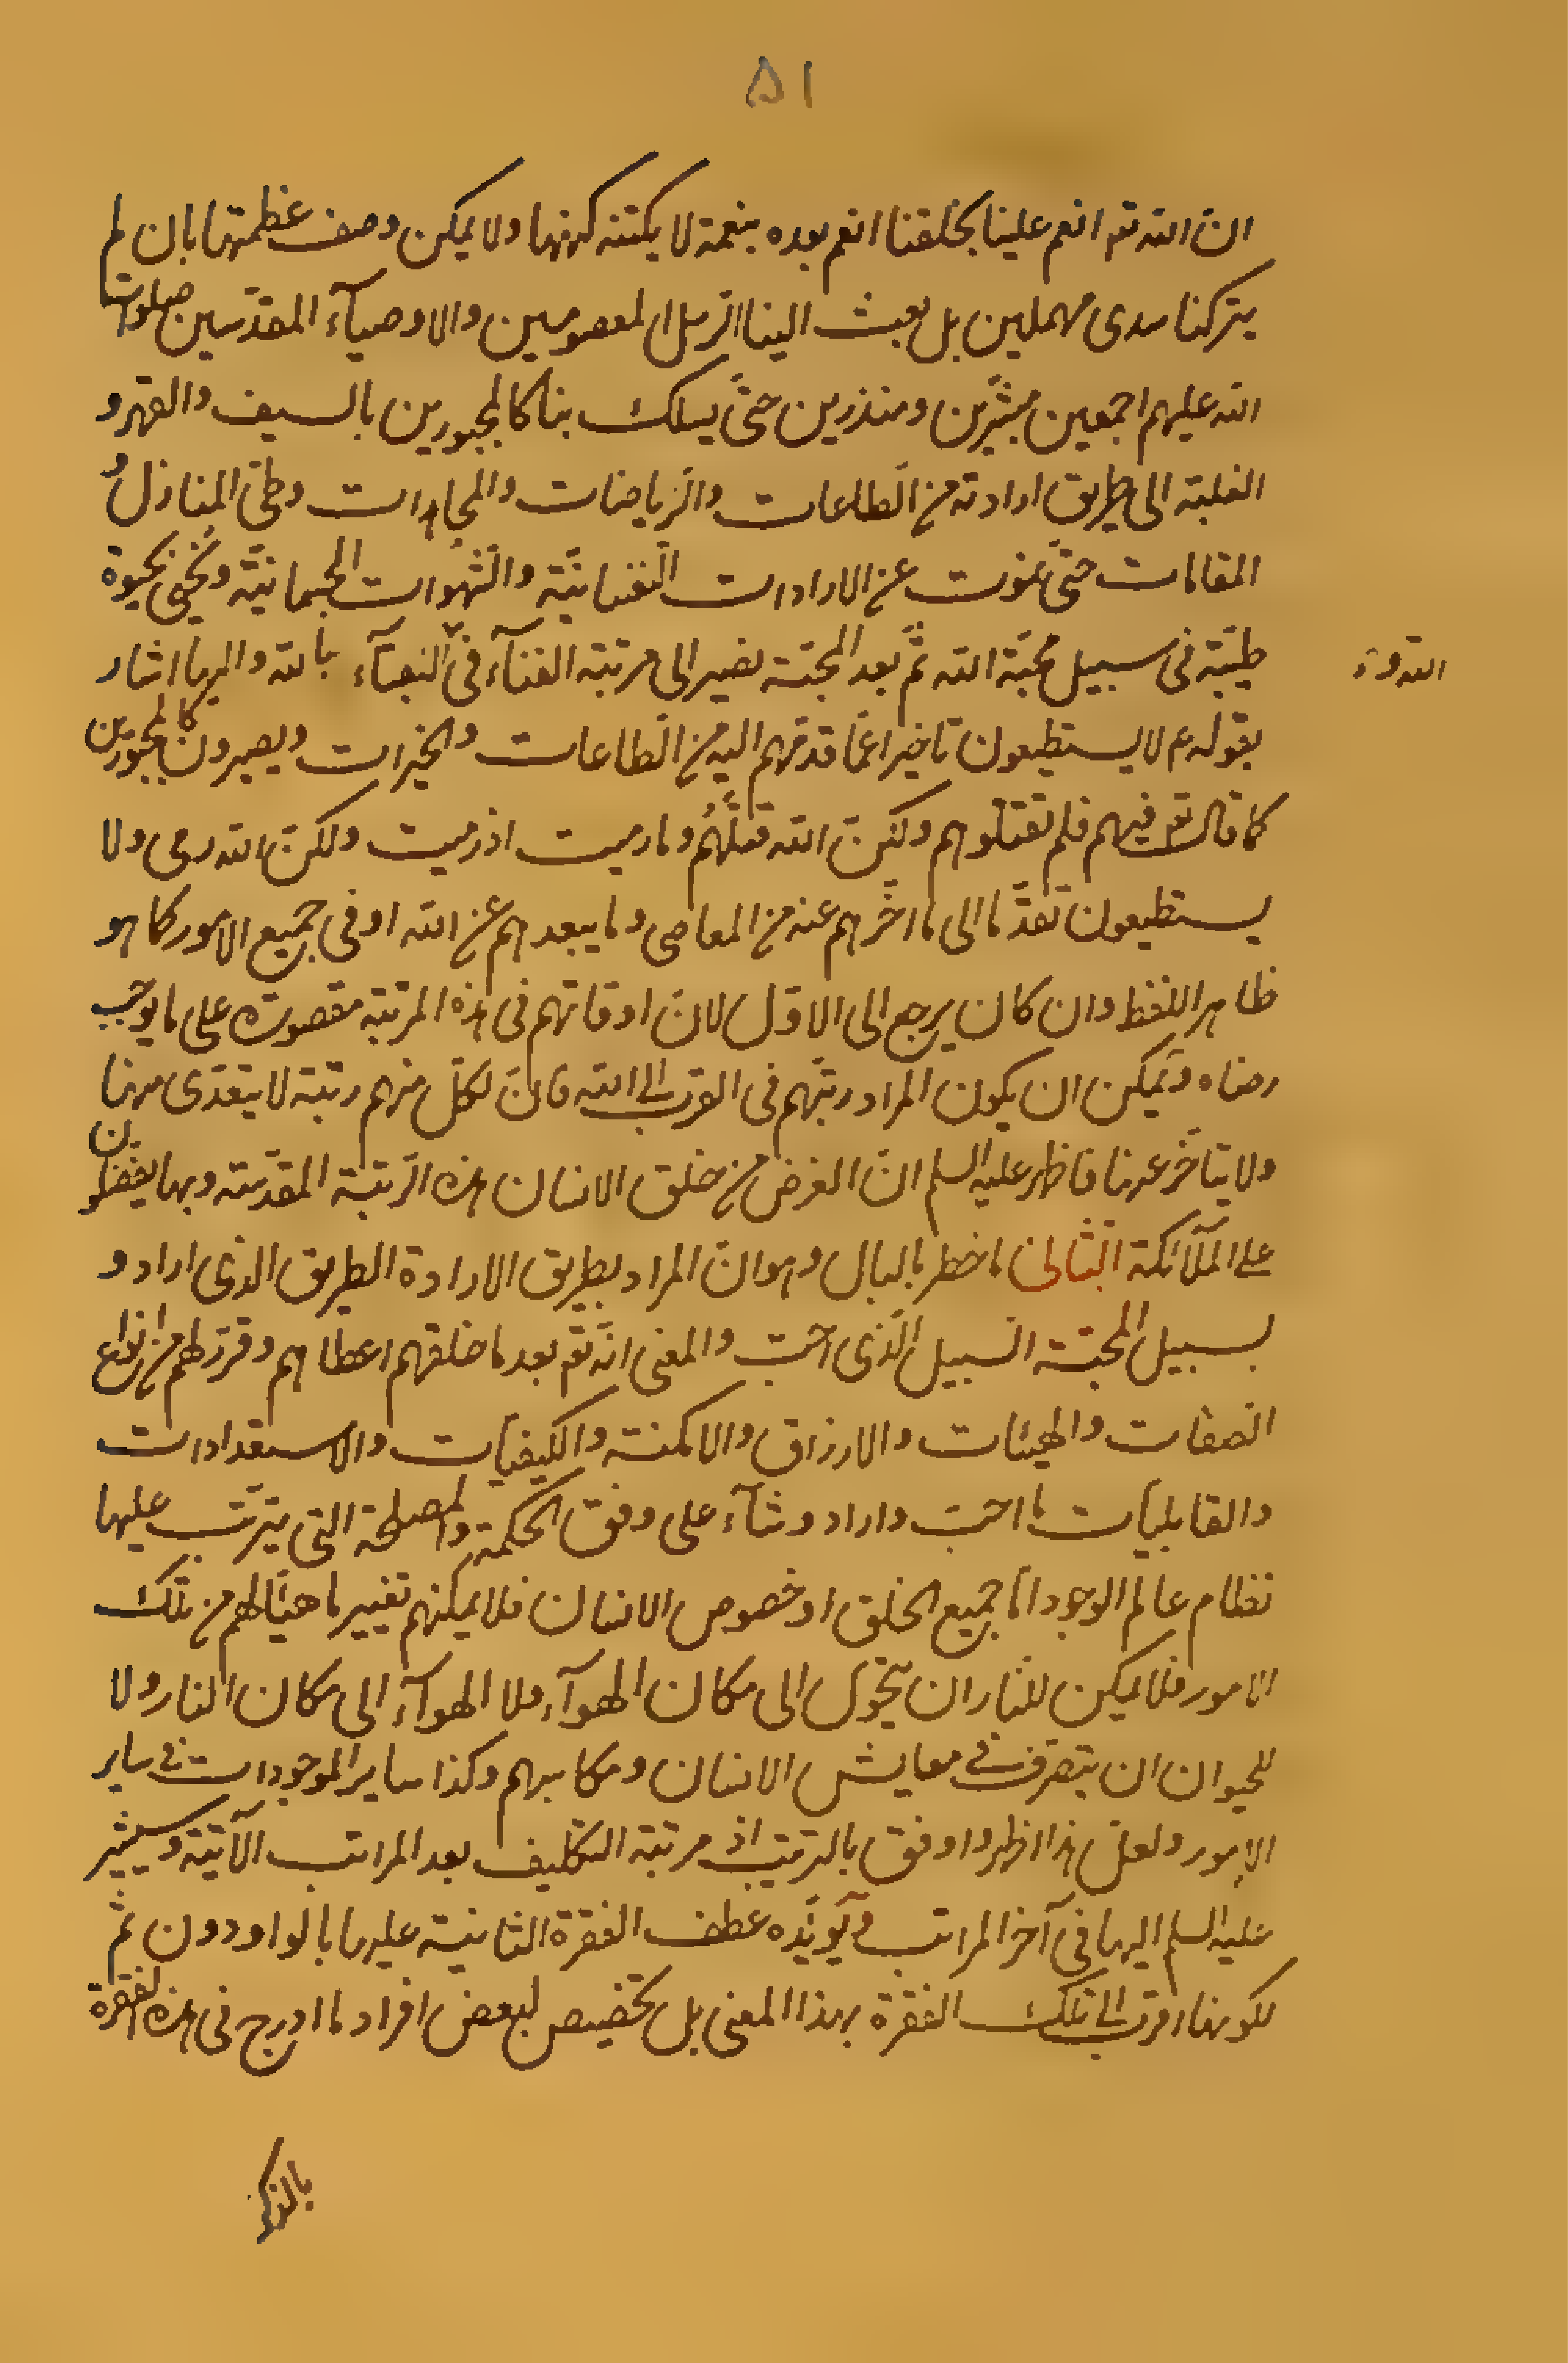 ٥١
ان الله تع انعم علينا بخلقنا انعم بعده بنعمة لا يكتنه كنهها ولا يمكن وصف عظمتها بان لم
يتركنا سدى مهملين بل بعث الينا الرسل المعصومين والاوصيآء المقدّسين صلوات
الله عليهم اجمعين مبشّرين ومنذرين حتّى يسلك بنا كالمجبورين بالسيف والقهر و
الغلبة الى طريق ارادته من الطاعات والرياضات والمجاهدات وطىّ المنازل و
المقامات حتّى نموت عن الارادات النفسانيّة والشهوات الجسمانيّة ونحيى بحيوة
طيّبة فى سبيل محبّة الله ثمّ بعد المحبّة نصير الى مرتبة الفنآء فى البقآء بالله واليها اشار
الله و
بقوله ع لا يستطيعون تاخيرا عمّا قدّمهم اليه من الطاعات والخيرات ويصيرون كالمجبورين
كما قال تع فيهم فلم تقتلوهم ولكنّ الله قتلهم وما رميت اذ رميت ولكنّ الله رمى ولا
يستطيعون تقدّما الى ما اخّرهم عنه من المعاصى وما يبعدهم عن الله او فى جميع الامور كما هو
ظاهر اللفظ وان كان يرجع الى الاوّل لانّ اوقاتهم فى هذه المرتبة مقصورة على ما يوجب
رضاه ويمكن ان يكون المراد رتبتهم فى القرب الى الله فانّ لكلّ منهم رتبة لا يتعدّى منها
ولا يتاخّر عنها فاظهر عليه السلم انّ الغرض من خلق الانسان هذه الرتبة المقدّسة وبها يفضلون
على الملآئكة الثانى ما خطر بالبال وهو انّ المراد بطريق الارادة الطريق الذى اراد و
بسبيل المحبّة السبيل الّذى احبّ والمعنى انّه تع بعد ما خلقهم اعطاهم وقرّر لهم من انواع
الصفات والهيئات والارزاق والامكنة والكيفيات والاستعدادات
والقابليّات ما احبّ واراد وشآء على وفق الحكمة والمصلحة التى يترتّب عليها
نظام عالم الوجود امّا جميع الخلق او خصوص الانسان فلا يمكنهم تغيير ما هيّأ لهم من تلك
الامور فلا يمكن للنار ان يتحوّل الى مكان الهوآء ولا الهوآء الى مكان النار ولا
للحيوان ان يتصرف فى معايش الانسان ومكاسبهم وكذا ساير الموجودات فى ساير
الامور ولعلّ هذا اظهر واوفق بالترتيب اذ مرتبة التكليف بعد المراتب الآتية وسيشير
عليه السلم اليها فى آخر المراتب ويؤيّده عطف الفقرة الثانية عليها بالواو دون ثمّ
لكونها اقرب الى تلك الفقرة بهذا المعنى بل تخصيص لبعض افراد ما ادرج فى هذه الفقرة
بالذكر